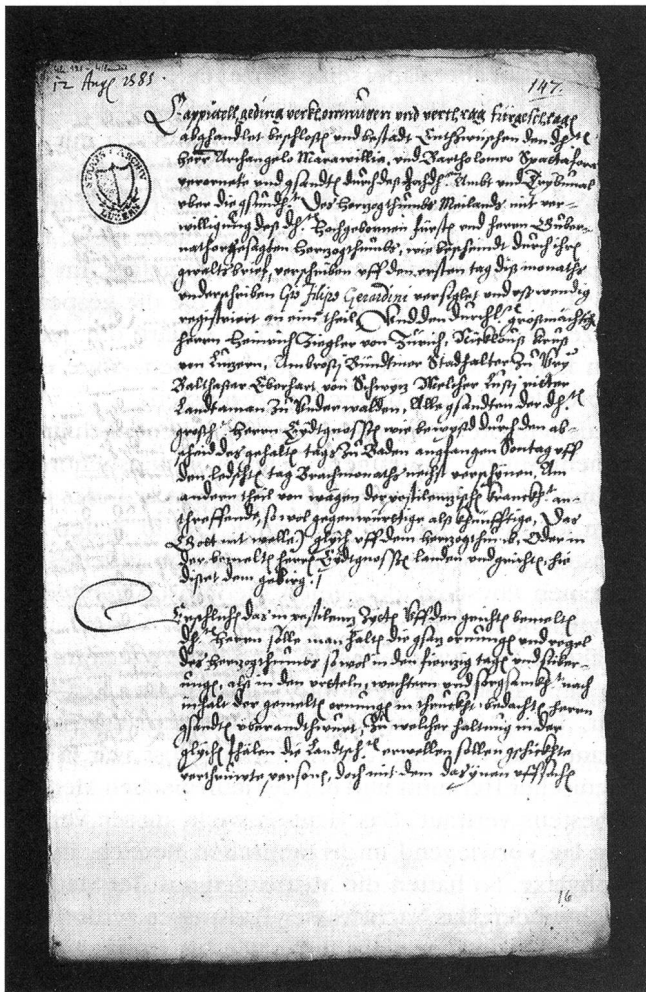 12 Aug 1585
147.
STAATSARCHIV LUZERN
Cappitell geding verkhomnussen und vertrag fürgeschlagen
abghandlet beschlossen und bestädt Entzwüschen den
Herr Archangelo Marawillia, und Bartholomeo Spactafora
verornete und gsandte durch das Ambt und Trybunal
über die gsundheit Des Herzogthumbs Meilands mit ver-
willigung deß Hochgebornen fürsten und herren Guber-
nathor gesagten Herzogthumbs, wie bescheindt durch ihre
gwaltsbrieff, verschriben uff den ersten tag diß monaths
underschriben Gio Filipo Gerardini versiglet und
registriert an eim theil, Und den durchl großmächtig
Herren Heinrich Ziegler von Zürich, Nicklauß Kruß
von Luzern, Ambrosi Bündtiner Stadhalter zu Ury
Balthasar Eberhart von Schwyz Melcher Lussi ritter
Landtaman zu Underwalden, Alle gsandten der
herren Eydtgnossen wie bewyst durch den ab-
scheid des gehalten tags zu Baden angfangen Sontag uff
den letschten tag Brachmonaths nechst verschinen, Am
andern theil von wägen der pestilenzische kranckheit an-
threffende, so wol gegenwürtige als khünfftige, Das
Gott nit welle, glych uff dem herzogthumb, Oder in
der bemelten herren Eydtgnossen landen und grichten hie
disset dem gebirg.
Erstlich das in pestilenz Zyten uff den grichten bemelten
Herren sölle man halten die gsaz ornungen und regel
des herzogthumbs so wol in den fierzig tagen und süber-
ungen, als in den wechtern und sorgsamkheit nach
inhalt der gemelten ornungen in thruckht bedachten herren
gsandten überandthwurt, Zu welcher haltung in der
glychen fhälen die Landtsch erwellen söllen gschickhte
verthruwte personen, doch mit dem das ynen uffsächen
16